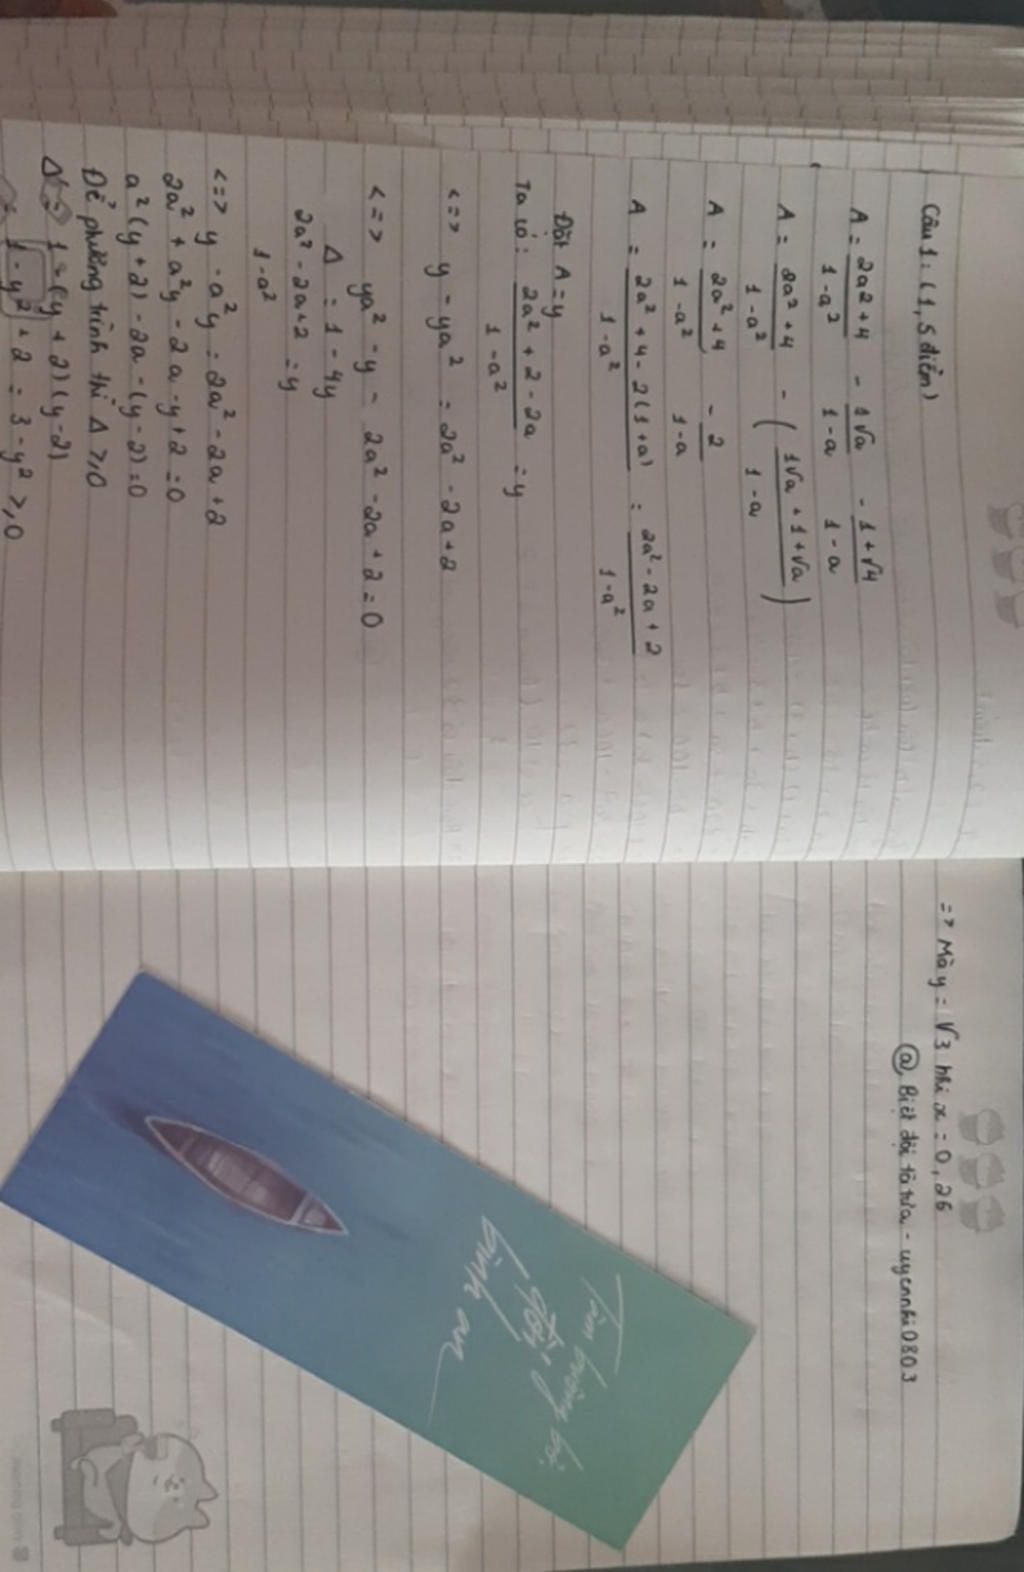 Câu 1: (1,5 điểm)
A = 2a2+4 / 1-a² - 1√a / 1-a - 1+√4 / 1-a
A = 2a²+4 / 1-a² - ( 1√a + 1+√a / 1-a )
A = 2a²+4 / 1-a² - 2 / 1-a
A = 2a²+4-2(1+a) / 1-a² = 2a²-2a+2 / 1-a²
Đặt A=y
Ta có: 2a²+2-2a / 1-a² = y
<=> y - ya² = 2a² - 2a+2
<=> ya² - y - 2a² - 2a + 2 = 0
Δ = 1 - 4y
2a² - 2a+2 / 1-a² = y
<=> y - a²y = 2a² - 2a + 2
2a² + a²y - 2a - y + 2 = 0
a²(y+2) - 2a - (y-2)=0
Để phương trình thì Δ >,0
1 - (y+2)(y-2)
1-y² + 2 = 3 - y² >,0
=> Mày = √3 khi x = 0,26
@ Biệt đội tà tưa - uyennhi0803
Tâm buông bỏ,
đời
bình an